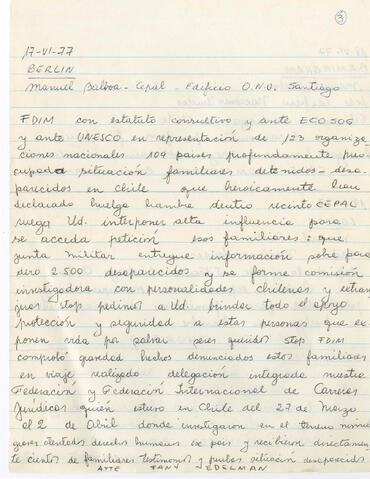 3
17-VI-77
BERLIN
Manuel Balboa - Cepal - Edificio O.N.U. Santiago
FDIM con estatuto consultivo y ante ECOSOC
y ante UNESCO en representación de 123 organiza-
ciones nacionales 109 países profundamente preo
cupada situación familiares detenidos - desa-
parecidos en Chile que heroicamente han
declarado huelga hambre dentro recinto CEPAL
ruega Ud. interponer alta influencia para
se acceda petición esos familiares: que
junta militar entregue información sobre para
dero 2.500 desaparecidos y se forme comisión
investigadora con personalidades chilenas y extran
jeras stop pedimos a Ud. brindar todo el apoyo
protección y seguridad a estas personas que ex-
ponen vida por salvar seres queridos stop FDIM
comprobó hechos denunciados estos familiares
en viaje realizado delegación integrada nuestra
Federación y Federación Internacional de Carreras
Jurídicas quién estuvo en Chile del 27 de Marzo
al 2 de Abril donde investigaron en el terreno mismo
graves atentados derechos humanos ese país y recibieron directamen
te cientos de familiares testimonios y pruebas situación desaparecidos
ATTE FANY EDELMAN